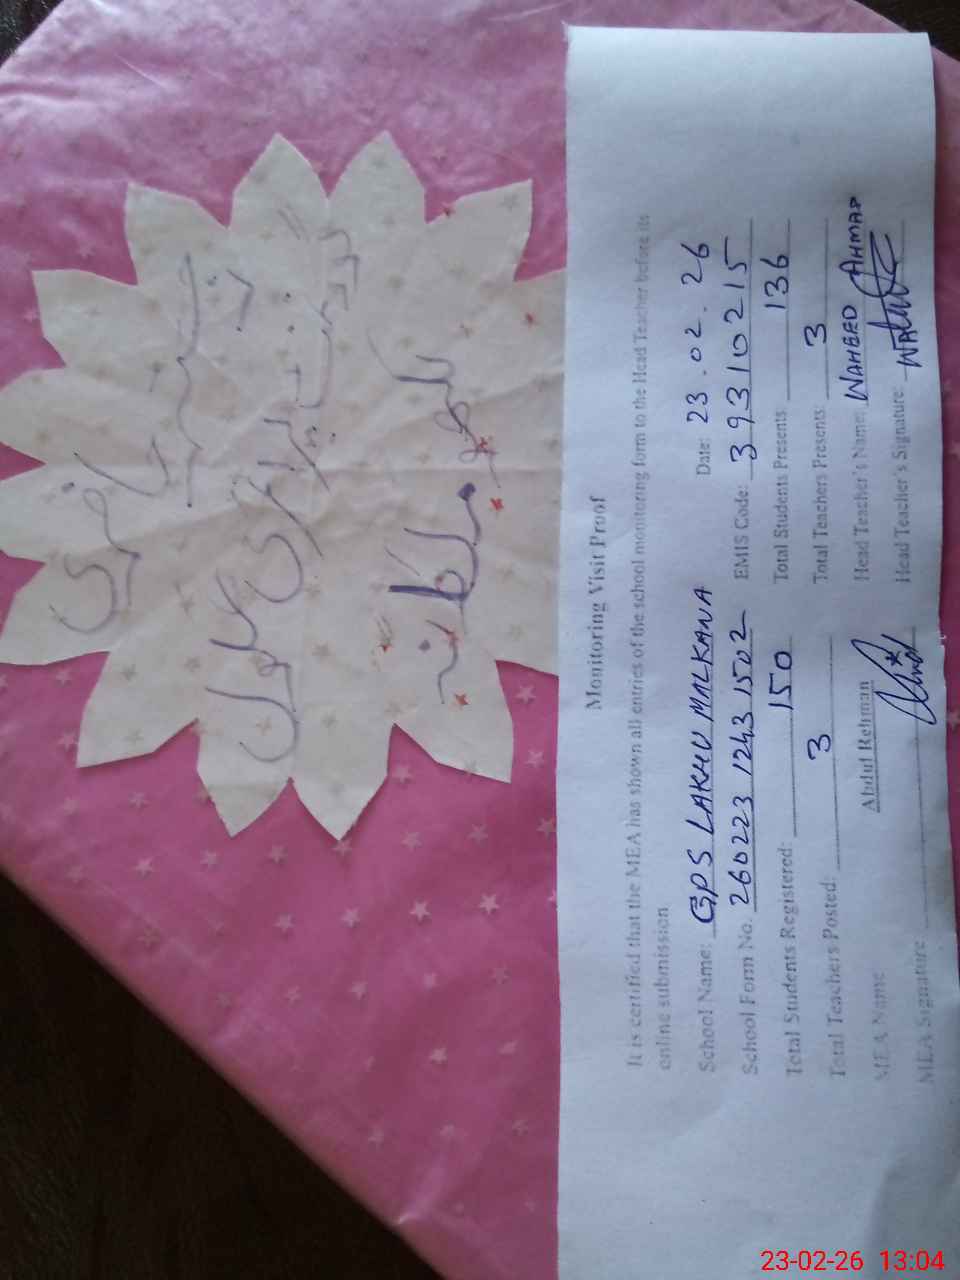 رجسٹر حاضری
گورنمنٹ پرائمری سکول
لکھو ملکانہ
Monitoring Visit Proof
It is certified that the MEA has shown all entries of the school monitoring form to the Head Teacher before its
online submission
School Name: GPS LAKHU MALKANA Date: 23.02.26
School Form No. 260223 1243 1502 EMIS Code: 39310215
Total Students Registered: 150 Total Students Presents: 136
Total Teachers Posted: 3 Total Teachers Presents: 3
MEA Name Abdul Rehman Head Teacher's Name: WAHEED AHMAD
MEA Signature Head Teacher's Signature:
23-02-26 13:04